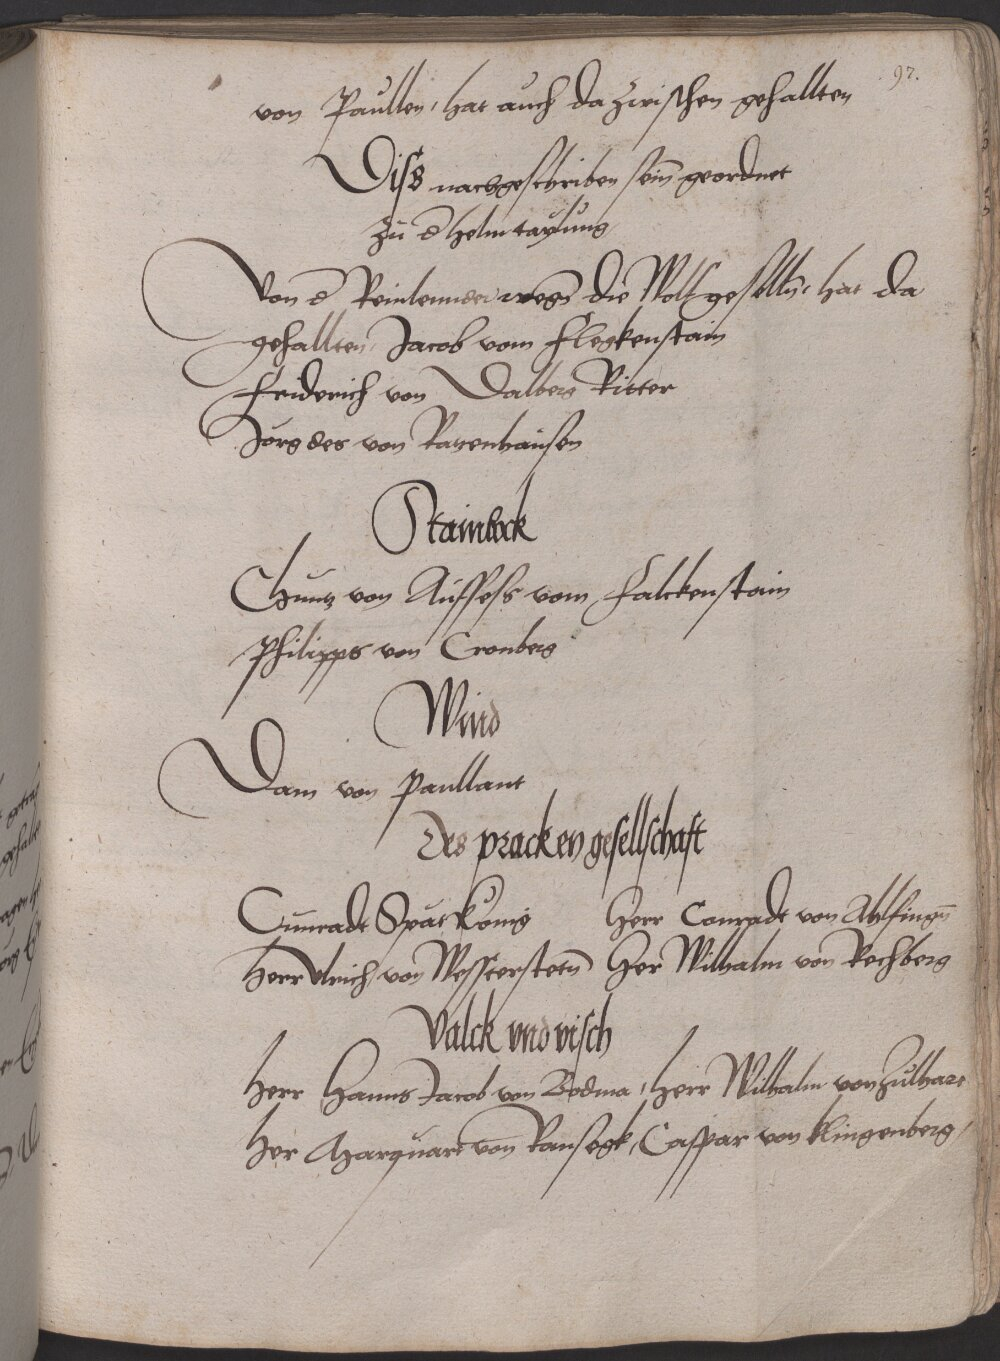 97.
von Paullen, hat auch da zwischen gehallten
Diss nachgeschriben sein geordnet
Zu d helm taylung
Von d Reinlennder wegn die Wolf geselln, hat da
gehallten, Jacob vom Fleckenstain
Friderich von Dalberg Ritter
Jorg des von Ratzenhausen
Stainbock
Chuntz von Auffses vom Falckenstain
Philipps von Cronberg
Wind
Dam von Paullant
Des pracken gesellschaft
Cunradt Spät König Herr Conradt von Ahlfingn
Herr Ulrich von Wessterstetn Her Wilhalm von Rechberg
Valck und visch
Herr Hanns Jacob von Bodma, Herr Wilhalm von Zulhart
Her Marquart von Ransegk, Caspar von Klingenberg,